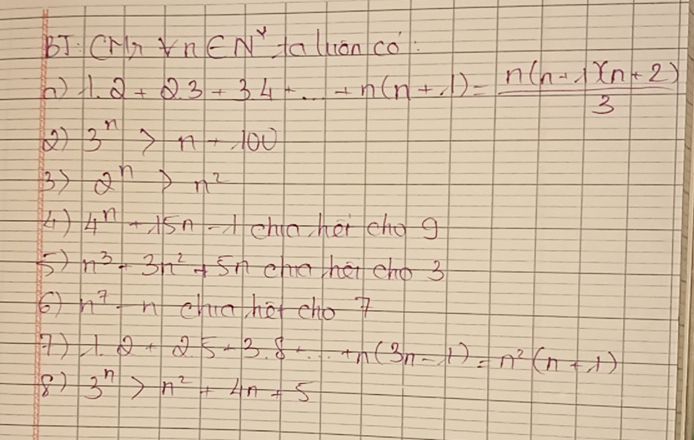 BT: CMr ∀n ∈ N* ta luôn có:
1) 1.2 + 2.3 + 3.4 + ... + n(n + 1) = n(n + 1)(n + 2)/3
2) 3ⁿ > n + 100
3) 2ⁿ > n²
4) 4ⁿ + 15n - 1 chia hết cho 9
5) n³ + 3n² + 5n chia hết cho 3
6) n⁷ - n chia hết cho 7
7) 1.2 + 2.5 + 3.8 + ... + n(3n - 1) = n²(n + 1)
8) 3ⁿ > n² + 4n + 5